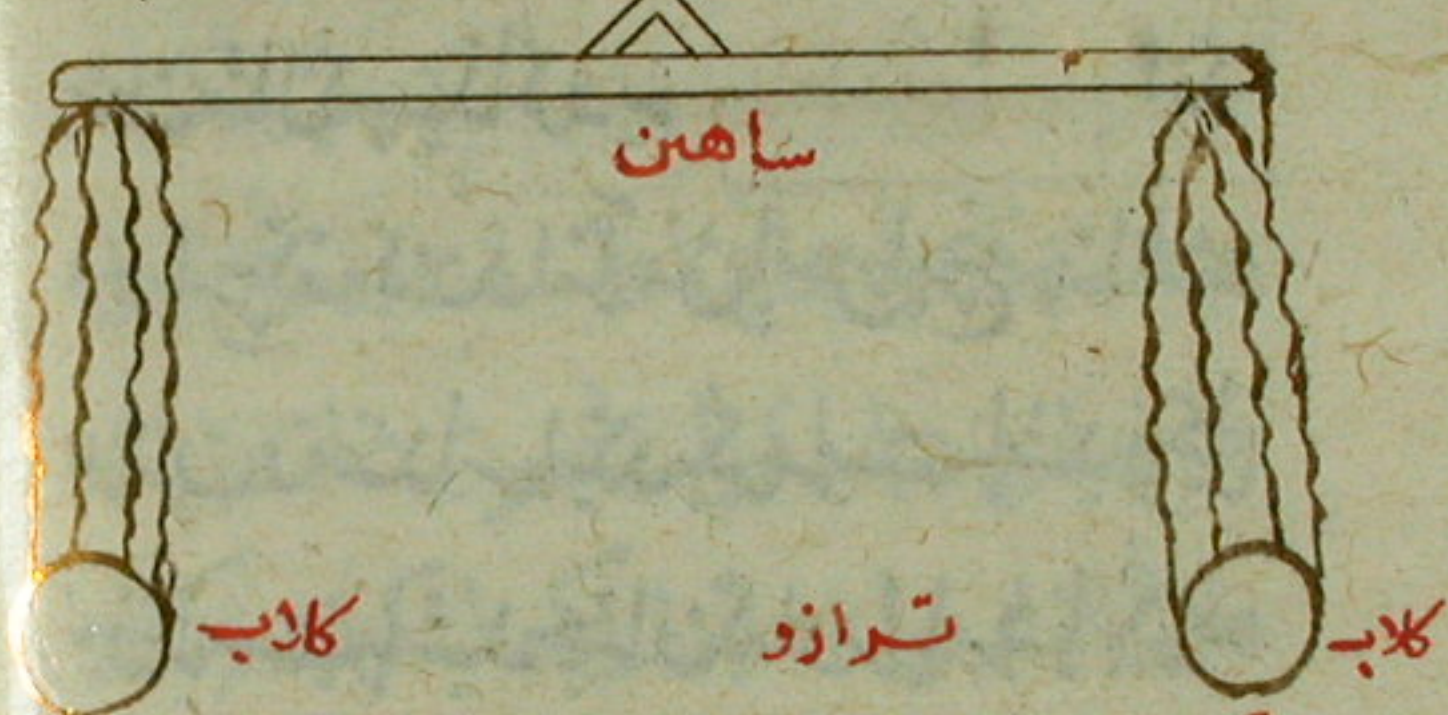 ساهىن
كلاب
ترازو
كلاب